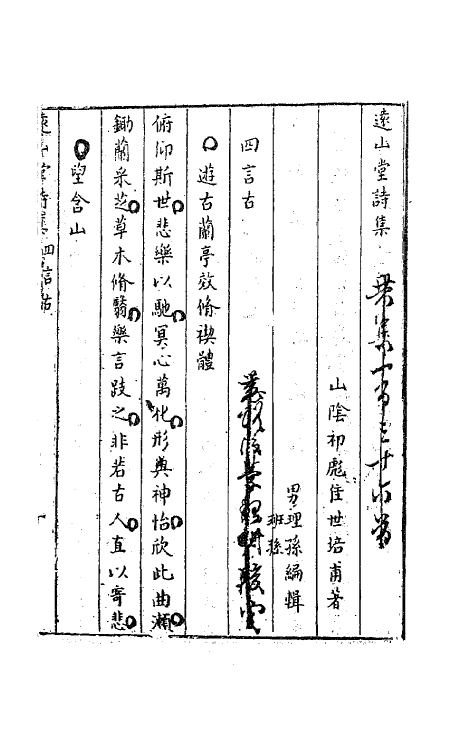 遠山堂詩集
山陰祁彪佳世培甫著
男理孫編輯
班孫
四言古
遊古蘭亭效脩禊體
俯仰斯世悲樂以馳冥心萬化形與神怡欣此曲瀨
鋤蘭采芝草木脩翳樂言跂之非若古人直以寄悲
望含山
遠山堂詩集 四言古